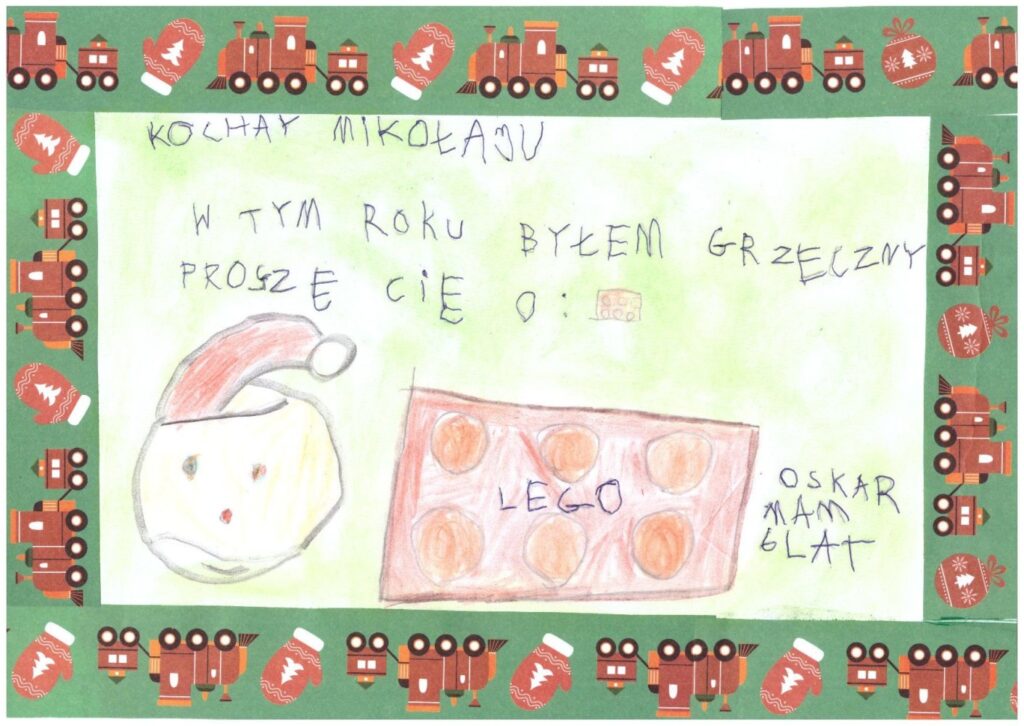 KOCHAY MIKOŁAJU
W TYM ROKU BYŁEM GRZĘCZNY
PROSZĘ CIĘ O:
LEGO
OSKAR
MAM
6 LAT